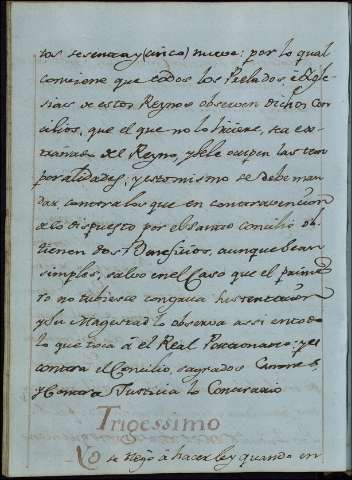 tos sesenta y (cinco) nueve: por lo qual
conviene que todos los Prelados é Igle-
sias de estos Reynos observen dichos Con
cilios, que el que no lo hiciere, sea ex-
trañado del Reyno, y se le ocupen las tem
poralidades; y esto mismo se debe man
dar, contra los que en contravencion
a lo dispuesto por el Santo Concilio ob-
tienen dos Beneficios, aunque sean
simples, salvo en el Caso que el prime
ro no tubiese congrua
y su Magestad lo observa assi en todo
lo que toca á el Real Patronato: y es
contra el Concilio, sagrados Canones,
y Contra Justicia lo Contrario
Trigessimo
Yo se nego á hacer ley quando en